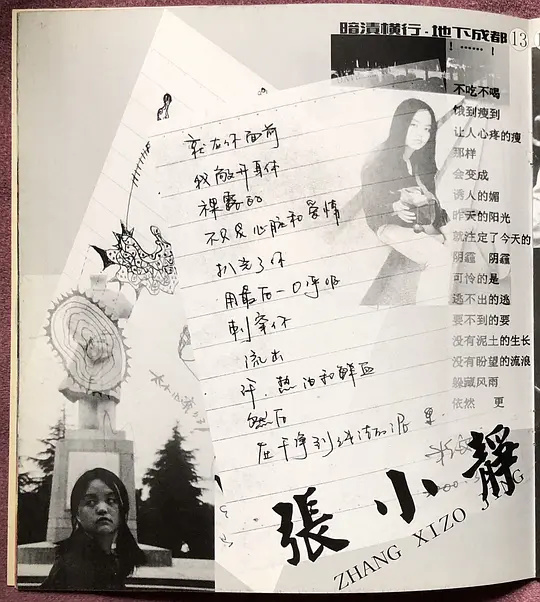 暗漬横行·地下成都 13
！……！
不吃不喝
饿到瘦到
让人心疼的瘦
那样
会变成
诱人的媚
昨天的阳光
就注定了今天的
阴霾　阴霾
可怜的是
逃不出的逃
要不到的要
没有泥土的生长
没有盼望的流浪
躲藏风雨
依然　更
就在你面前
我敞开身体
裸露的
不只是心脏和爱情
扒光了你
用最后一口呼吸
刺穿你
流出
汗、热泪和鲜血
然后
在干净到
張小靜
ZHANG XIZO